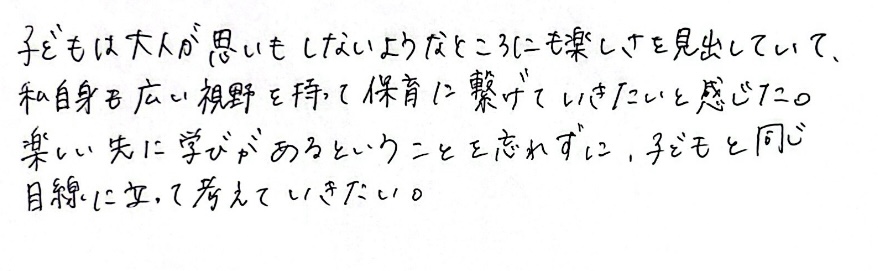 子どもは大人が思いもしないようなところにも楽しさを見出していて、
私自身も広い視野を持って保育に繋げていきたいと感じた。
楽しい先に学びがあるということを忘れずに、子どもと同じ
目線に立って考えていきたい。